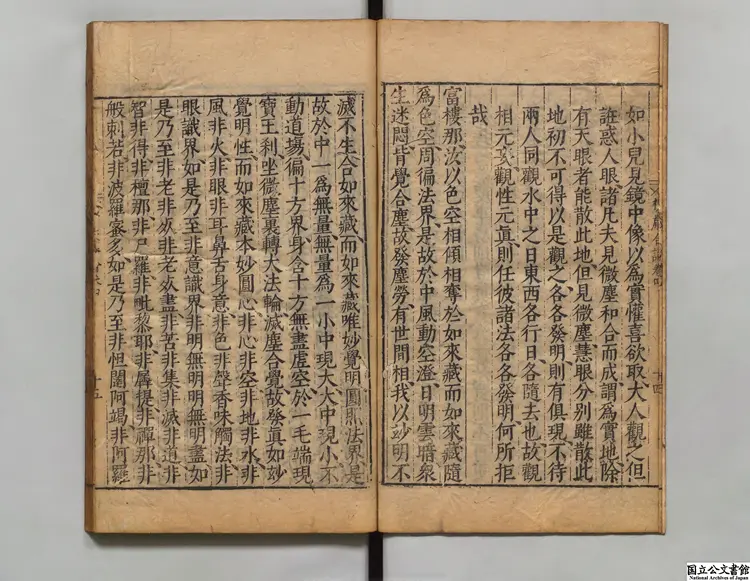 如小兒見鏡中像以為實懽喜欲取大人觀之但
誑惑人眼諸凡夫見微塵和合而成謂為實地除
有天眼者能散此地但見微塵慧眼分別雖散此
地初不可得以是觀之各各發明則有俱現不待
兩人同觀水中之日東西各行日各隨去也故觀
相元妄觀性元真則任彼諸法各各發明何所拒
哉
富樓那汝以色空相傾相奪於如來藏而如來藏隨
為色空周徧法界是故於中風動空澄日明雲暗衆
生迷悶背覺合塵故發塵勞有世間相我以妙明不
滅不生合如來藏而如來藏唯妙覺明圓照法界是
故於中一為無量無量為一小中現大大中現小不
動道場徧十方界身含十方無盡虛空於一毛端現
寶王刹坐微塵裏轉大法輪滅塵合覺故發真如妙
覺明性而如來藏本妙圓心非心非空非地非水非
風非火非眼非耳鼻舌身意非色非聲香味觸法非
眼識界如是乃至非意識界非明無明明無明盡如
是乃至非老非死非老死盡非苦非集非滅非道非
智非得非檀那非尸羅非毗黎耶非羼提非禪那非
般剌若非波羅蜜多如是乃至非怛闥阿竭非阿羅
十四
十五
国立公文書館
National Archives of Japan